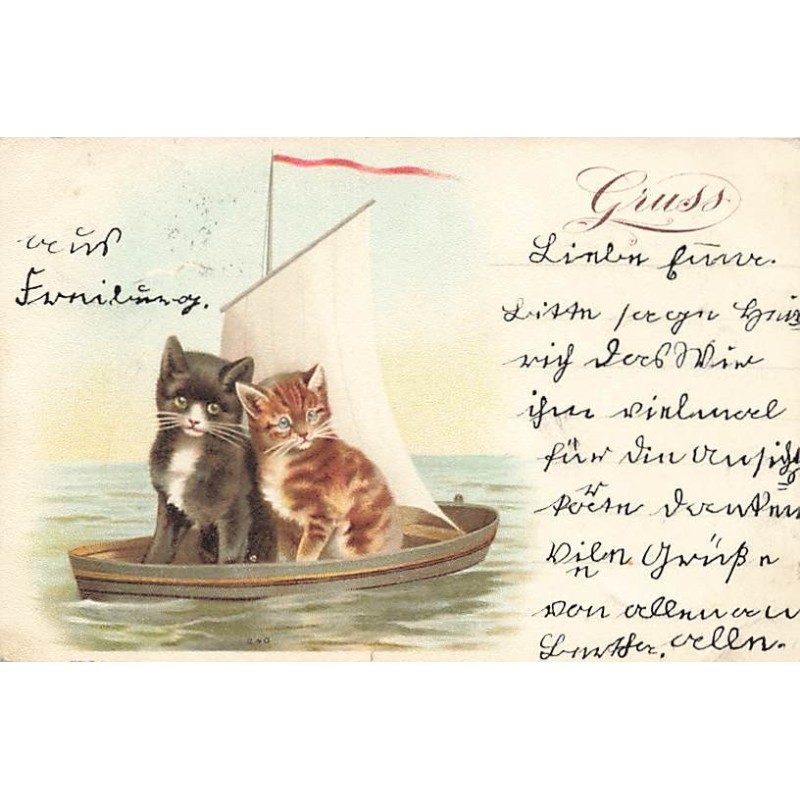 Gruss
aus
Freiburg.
Liebe Emma.
Bitte sage Hein
rich das Wir
ihm vielmal
für die Ansicht
karte danken
Viele Grüße
von allen an
Bertha. alle.